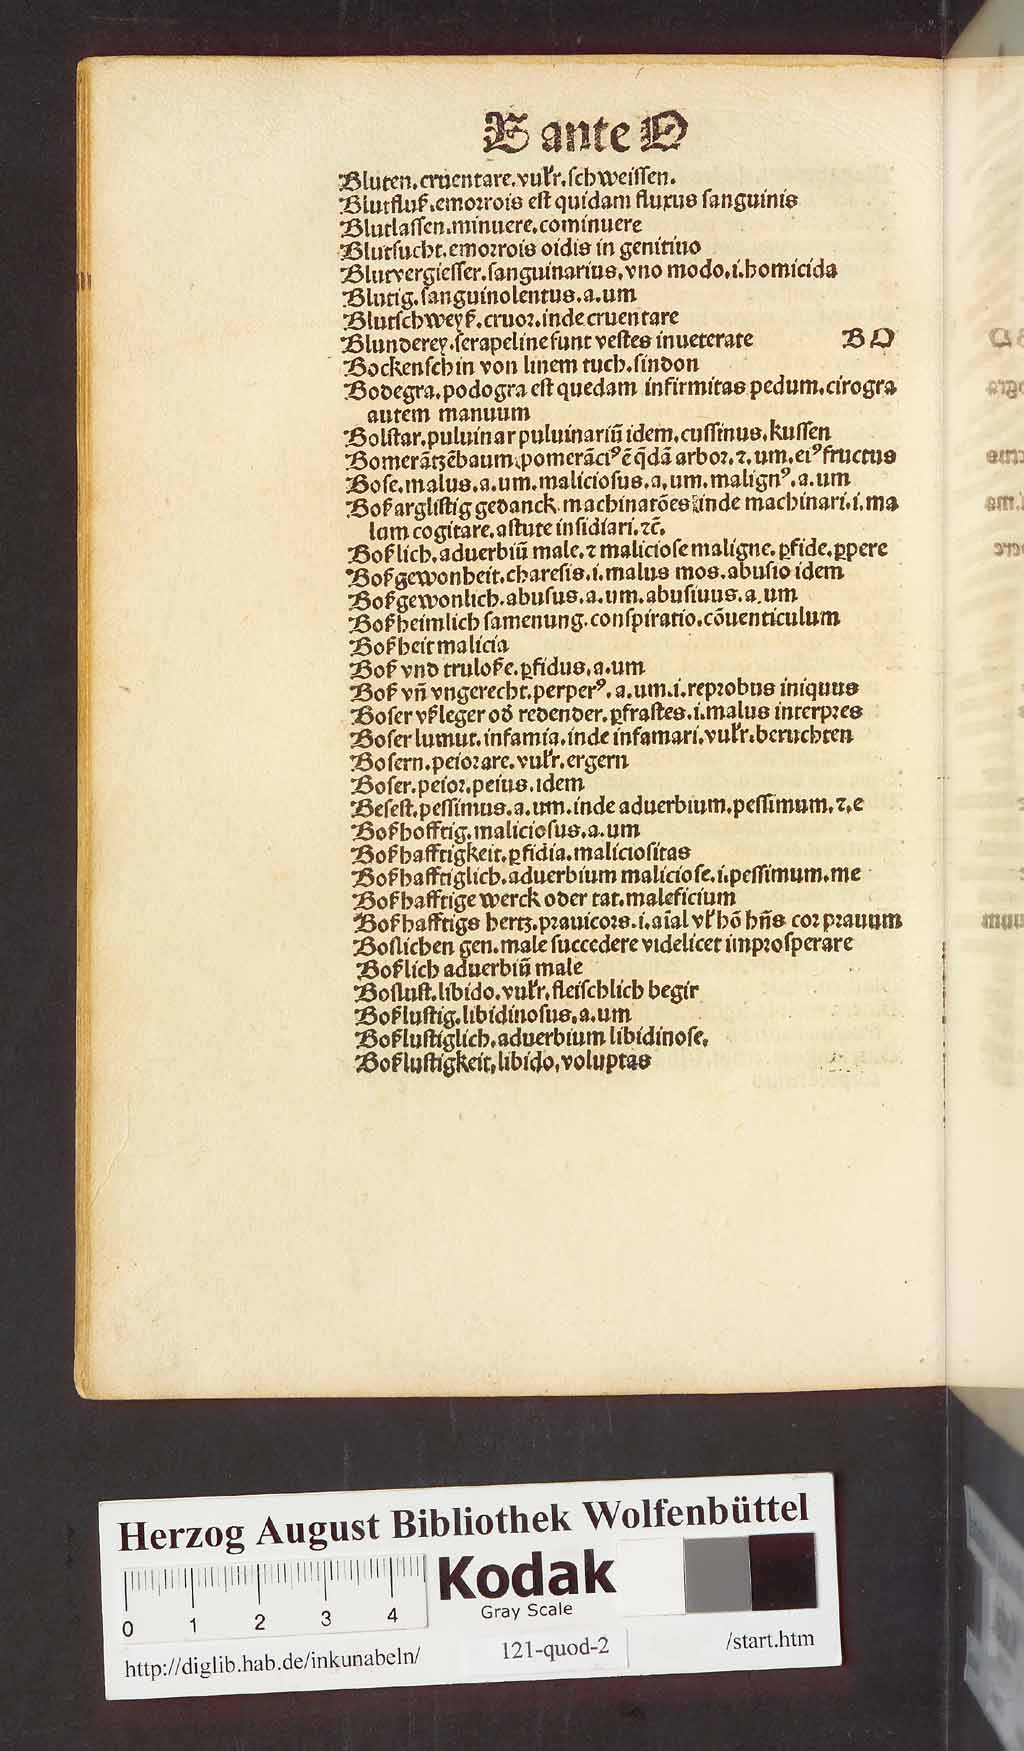 B ante O
Bluten. cruentare. vulr̕. schweissen.
Blutfluß. emorrois est quidam fluxus sanguinis
Blutlassen. minuere. cominuere
Blutsucht. emorrois oidis in genitiuo
Blutvergiesser. sanguinarius. vno modo. i. homicida
Blutig. sanguinolentus. a. um
Blutschweyß. cruor. inde cruentare
Blunderey. serapeline sunt vestes inueterate BO
Bockenschin von linem tuch. sindon
Bodegra. podogra est quedam infirmitas pedum. cirogra
autem manuum
Bolstar. puluinar puluinariū idem. cussinus. kussen
Bomerātzēbaum. pomerāciꝰ ē q̄dā arbor. ⁊. um. eiꝰ fructus
Bose. malus. a. um. maliciosus. a. um. malignꝰ. a. um
Boß arglistig gedanck machinatōes inde machinari. i. ma
lum cogitare. astute insidiari. ⁊c̄.
Boßlich. aduerbiū male. ⁊ maliciose maligne. ꝑfide. ꝑpere
Boß gewonheit. charesis. i. malus mos. abusio idem
Boß gewonlich. abusus. a. um. abusiuus. a. um
Boß heimlich samenung. conspiratio. cōuenticulum
Boßheit malicia
Boß vnd truloße. ꝑfidus. a. um
Boß vn̄ vngerecht. perperꝰ. a. um. i. reprobus iniquus
Boser vßleger od̕ redender. ꝑfrastes. i. malus interpres
Boser lumut. infamia. inde infamari. vulr̕. beruchten
Bosern. peiorare. vulr̕. ergern
Boser. peior. peius. idem
Besest. pessimus. a. um. inde aduerbium. pessimum. ⁊. e
Boßhofftig. maliciosus. a. um
Boßhafftigkeit. ꝑfidia. maliciositas
Boßhafftiglich. aduerbium maliciose. i. pessimum. me
Boßhafftige werck oder tat. maleficium
Boßhafftigs hertz. prauicors. i. aīal vl̕ hō hn̄s cor prauum
Boslichen gen. male succedere videlicet inprosperare
Boßlich aduerbiū male
Boslust. libido. vulr̕. fleischlich begir
Boßlustig. libidinosus. a. um
Boßlustiglich. aduerbium libidinose.
Boßlustigkeit. libido. voluptas
Herzog August Bibliothek Wolfenbüttel
Kodak
Gray Scale
0 1 2 3 4
http://diglib.hab.de/inkunabeln/ 121-quod-2 /start.htm